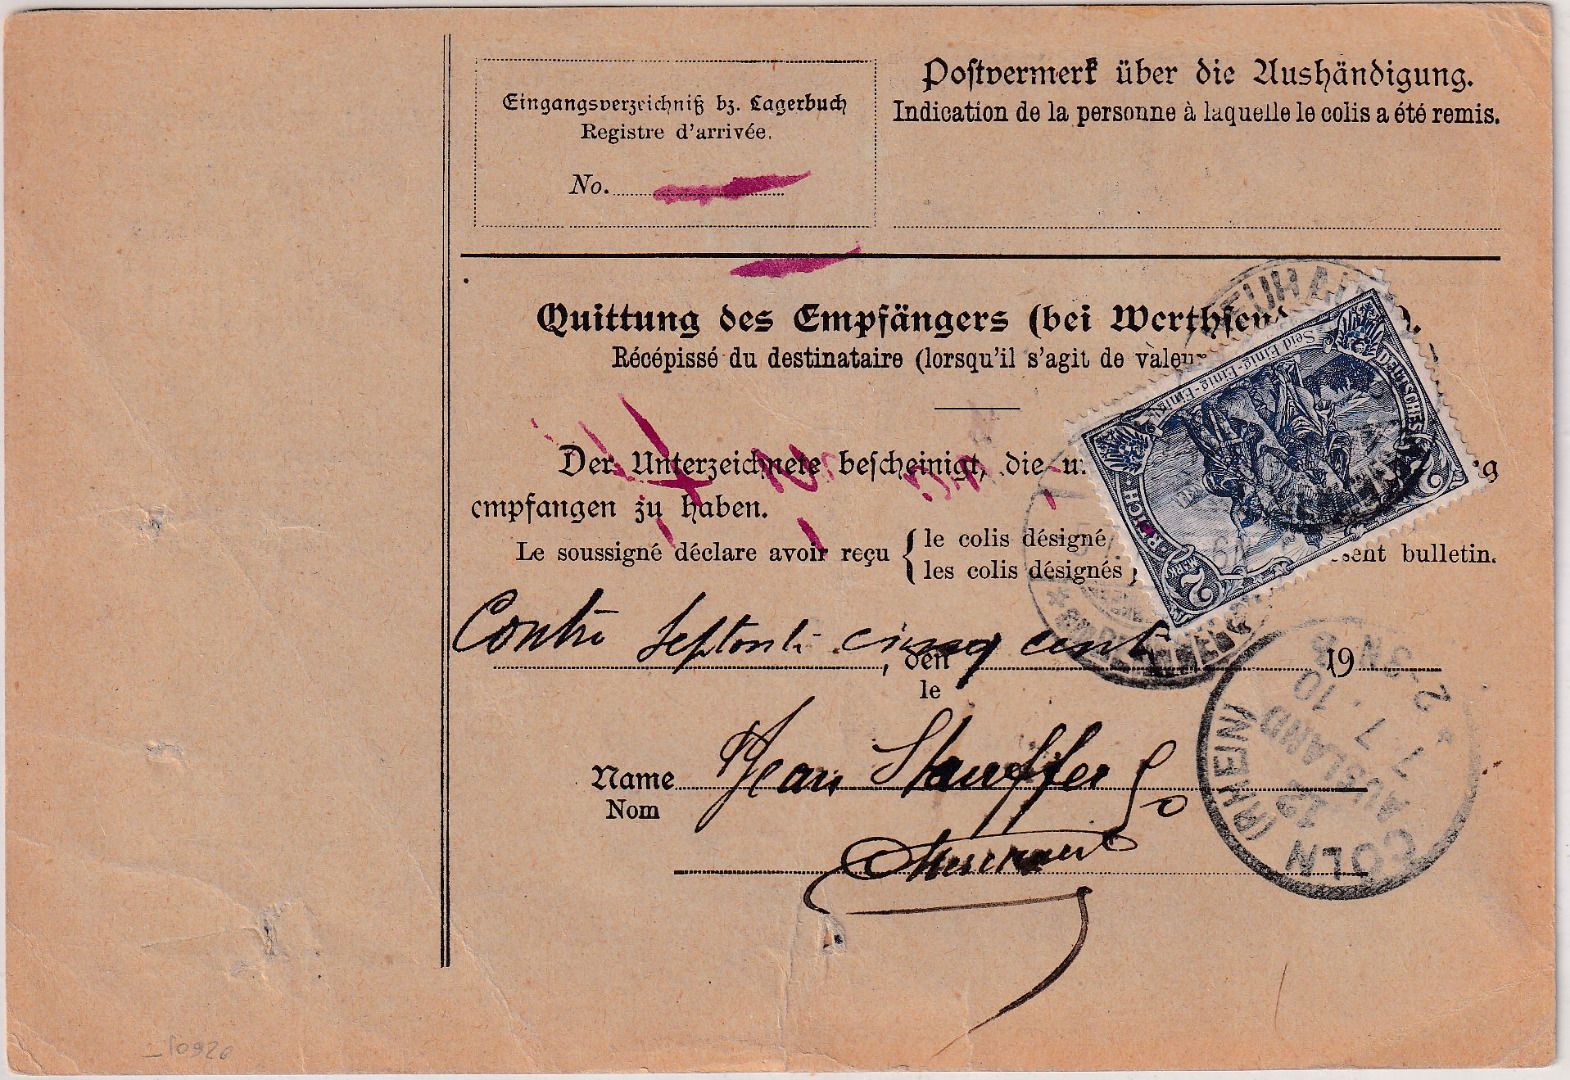 Eingangsverzeichniß bz. Lagerbuch
Registre d'arrivée.
No.
Postvermerk über die Aushändigung.
Indication de la personne à laquelle le colis a été remis.
Quittung des Empfängers (bei Werthsend
Récépissé du destinataire (lorsqu'il s'agit de valeur
Der Unterzeichnete bescheinigt, die u
empfangen zu haben.
Le soussigné déclare avoir reçu { le colis désigné
les colis désignés
sent bulletin.
DEUTSCHES REICH
Seid Einig-Einig-Einig
2 MARK 2
Contre cinq cent
, den 19
le
Name Jean Stauffer
Nom
CÖLN (RHEIN)
12
AUSLAND
7. 7. 10
2-3N
10920